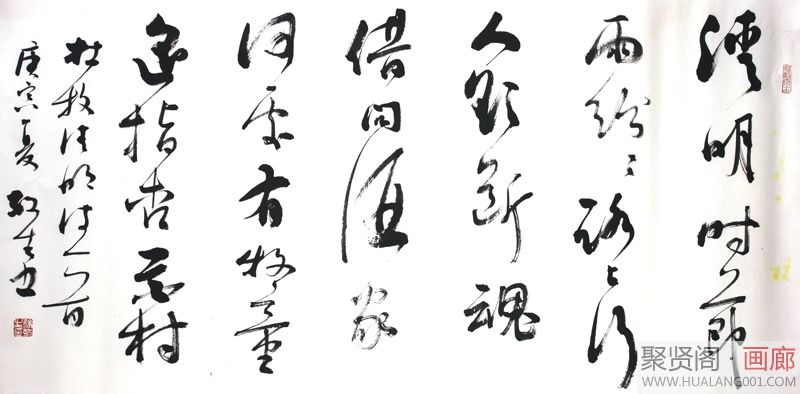 清明时节
雨纷〻路上行
人欲断魂
借问酒家
何处有牧童
遥指杏花村
杜牧清明诗一首
庚寅夏
聚贤阁 画廊
WWW.HUALANG001.COM